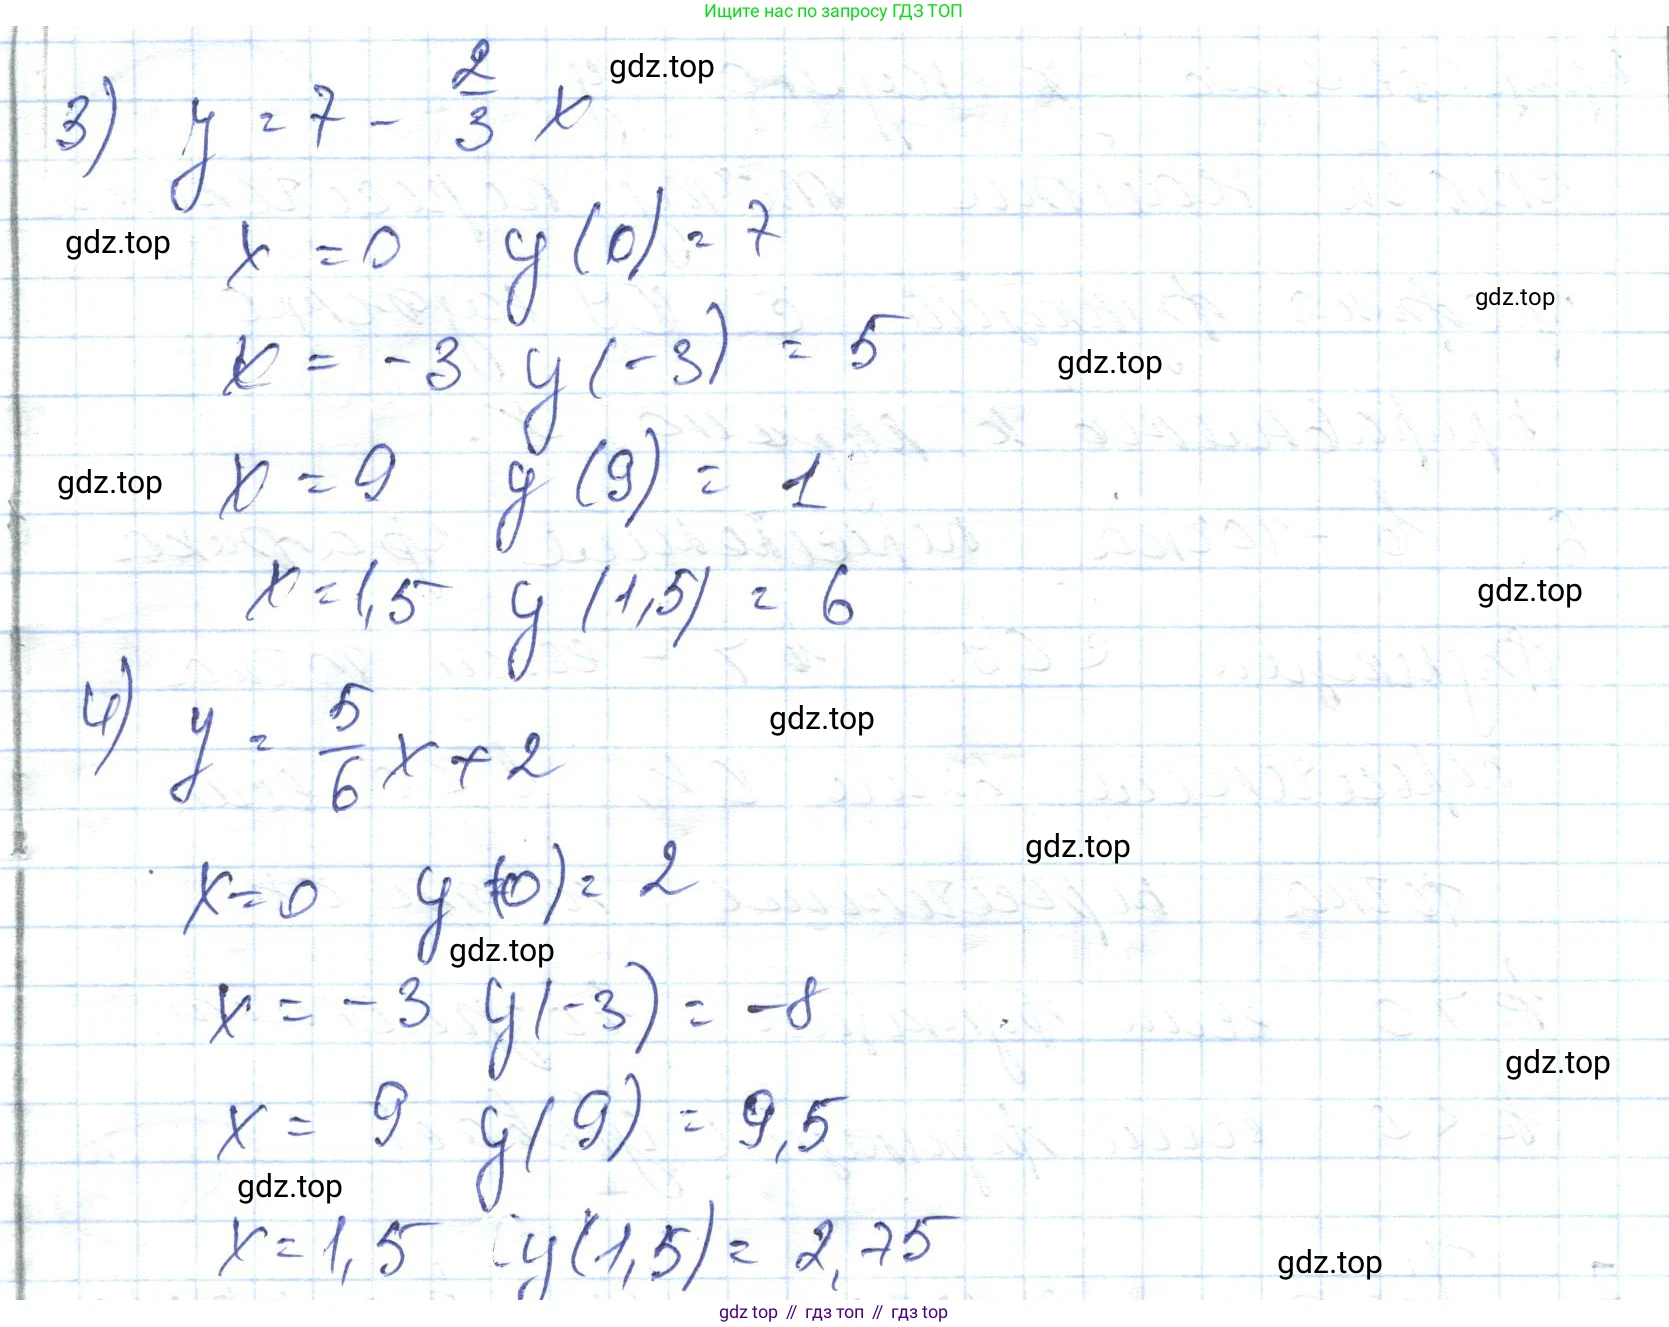 Ищите нас по запросу ГДЗ ТОП
3) y = 7 - 2/3 x
gdz.top
gdz.top
x = 0 y(0) = 7
gdz.top
x = -3 y(-3) = 5
gdz.top
gdz.top
x = 9 y(9) = 1
x = 1,5 y(1,5) = 6
gdz.top
4) y = 5/6 x + 2
gdz.top
gdz.top
x = 0 y(0) = 2
gdz.top
x = -3 y(-3) = -8
gdz.top
x = 9 y(9) = 9,5
gdz.top
x = 1,5 y(1,5) = 2,75
gdz.top
gdz top // гдз топ // гдз top